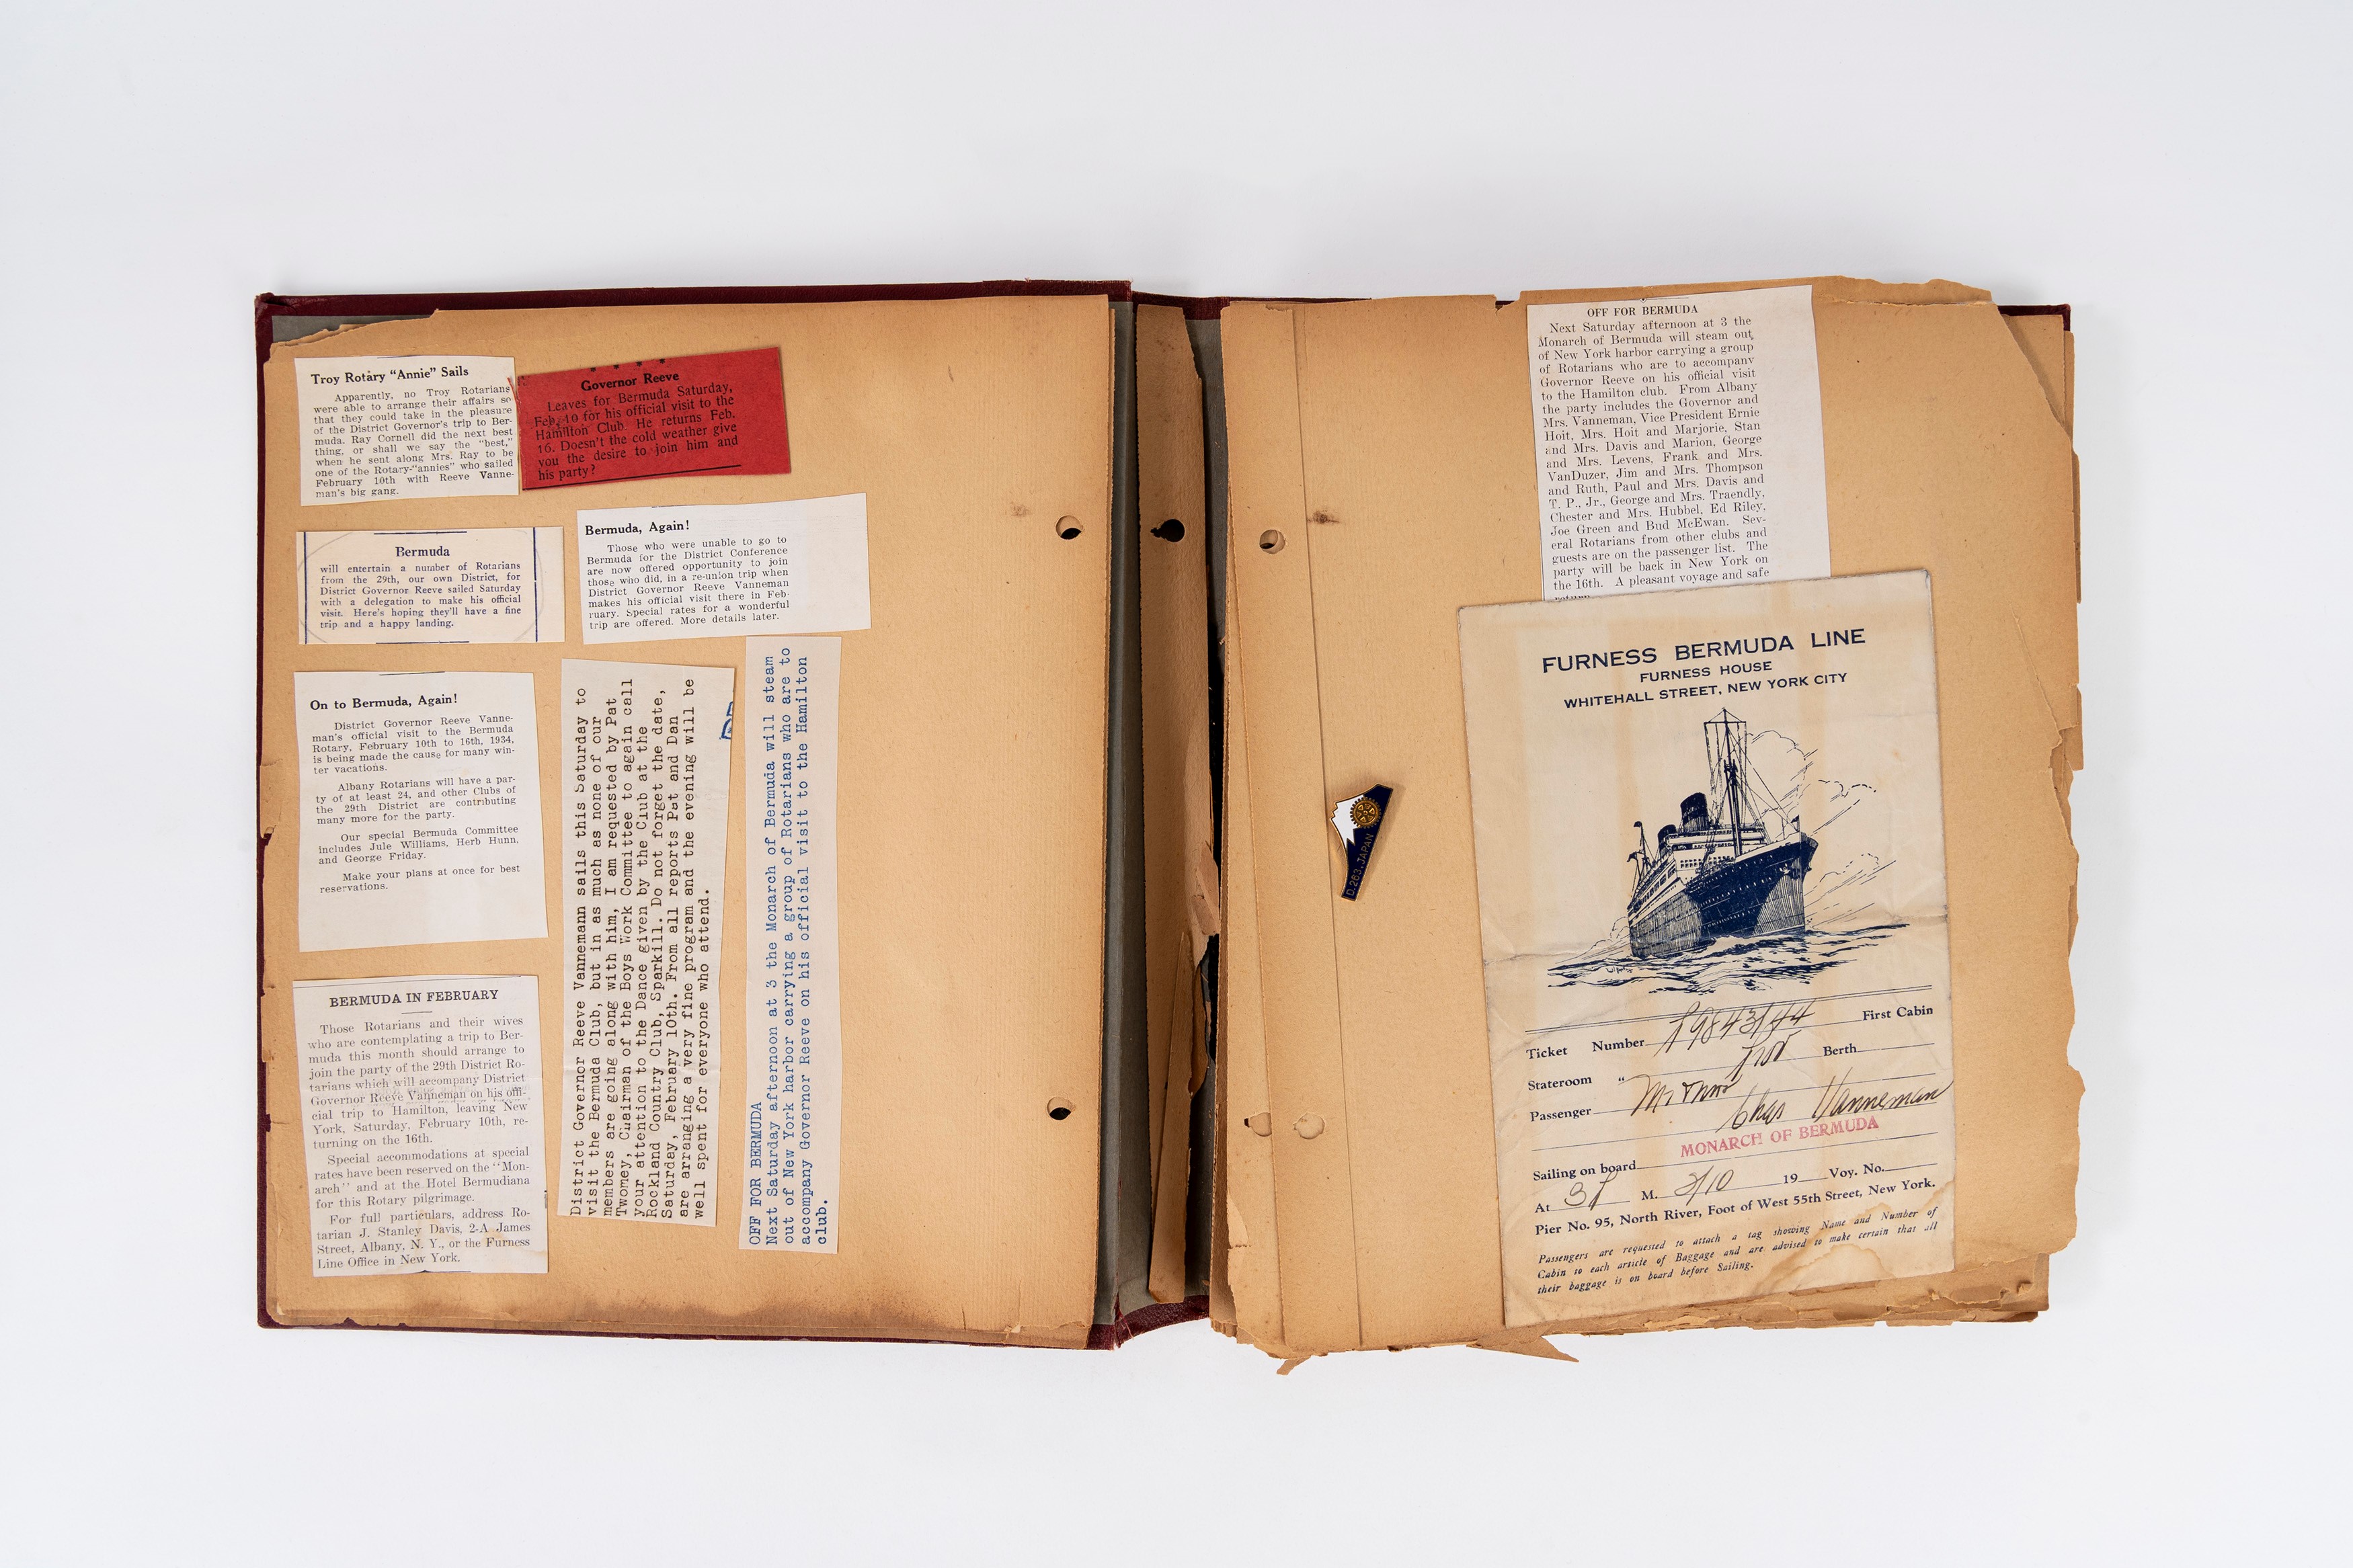 Troy Rotary "Annie" Sails
Apparently, no Troy Rotarians
were able to arrange their affairs so
that they could take in the pleasure
of the District Governor's trip to Ber-
muda. Ray Cornell did the next best
thing, or shall we say the "best,"
when he sent along Mrs. Ray to be
one of the Rotary-"annies" who sailed
February 10th with Reeve Vanne-
man's big gang.
Governor Reeve
Leaves for Bermuda Saturday,
Feb. 10 for his official visit to the
Hamilton Club. He returns Feb.
16. Doesn't the cold weather give
you the desire to join him and
his party?
Bermuda
will entertain a number of Rotarians
from the 29th, our own District, for
District Governor Reeve sailed Saturday
with a delegation to make his official
visit. Here's hoping they'll have a fine
trip and a happy landing.
Bermuda, Again!
Those who were unable to go to
Bermuda for the District Conference
are now offered opportunity to join
those who did, in a re-union trip when
District Governor Reeve Vanneman
makes his official visit there in Feb-
ruary. Special rates for a wonderful
trip are offered. More details later.
On to Bermuda, Again!
District Governor Reeve Vanne-
man's official visit to the Bermuda
Rotary, February 10th to 16th, 1934,
is being made the cause for many win-
ter vacations.
Albany Rotarians will have a par-
ty of at least 24, and other Clubs of
the 29th District are contributing
many more for the party.
Our special Bermuda Committee
includes Jule Williams, Herb Hunn,
and George Friday.
Make your plans at once for best
reservations.
BERMUDA IN FEBRUARY
Those Rotarians and their wives
who are contemplating a trip to Ber-
muda this month should arrange to
join the party of the 29th District Ro-
tarians which will accompany District
Governor Reeve Vanneman on his offi-
cial trip to Hamilton, leaving New
York, Saturday, February 10th, re-
turning on the 16th.
Special accommodations at special
rates have been reserved on the "Mon-
arch" and at the Hotel Bermudiana
for this Rotary pilgrimage.
For full particulars, address Ro-
tarian J. Stanley Davis, 2-A James
Street, Albany, N. Y., or the Furness
Line Office in New York.
District Governor Reeve Vannemann sails this Saturday to
visit the Bermuda Club, but in as much as none of our
members are going along with him, I am requested by Pat
Twomey, Chairman of the Boys Work Committee to again call
your attention to the Dance given by the Club at the
Rockland Country Club, Sparkill. Do not forget the date,
Saturday, February 10th. From all reports Pat and Dan
are arranging a very fine program and the evening will be
well spent for everyone who attend.
OFF FOR BERMUDA
Next Saturday afternoon at 3 the Monarch of Bermuda will steam
out of New York harbor carrying a group of Rotarians who are to
accompany Governor Reeve on his official visit to the Hamilton
club.
OFF FOR BERMUDA
Next Saturday afternoon at 3 the
Monarch of Bermuda will steam out
of New York harbor carrying a group
of Rotarians who are to accompany
Governor Reeve on his official visit
to the Hamilton club. From Albany
the party includes the Governor and
Mrs. Vanneman, Vice President Ernie
Hoit, Mrs. Hoit and Marjorie, Stan
and Mrs. Davis and Marion, George
and Mrs. Levens, Frank and Mrs.
VanDuzer, Jim and Mrs. Thompson
and Ruth, Paul and Mrs. Davis and
T. P., Jr., George and Mrs. Traendly,
Chester and Mrs. Hubbel, Ed Riley,
Joe Green and Bud McEwan. Sev-
eral Rotarians from other clubs and
guests are on the passenger list. The
party will be back in New York on
the 16th. A pleasant voyage and safe
D.263.JAPAN
FURNESS BERMUDA LINE
FURNESS HOUSE
WHITEHALL STREET, NEW YORK CITY
Ticket Number First Cabin
Stateroom " Berth
Passenger Mr & Mrs
Chas Vanneman
MONARCH OF BERMUDA
Sailing on board
At 3 P M. 2/10 19 Voy. No.
Pier No. 95, North River, Foot of West 55th Street, New York.
Passengers are requested to attach a tag showing Name and Number of
Cabin to each article of Baggage and are advised to make certain that all
their baggage is on board before Sailing.